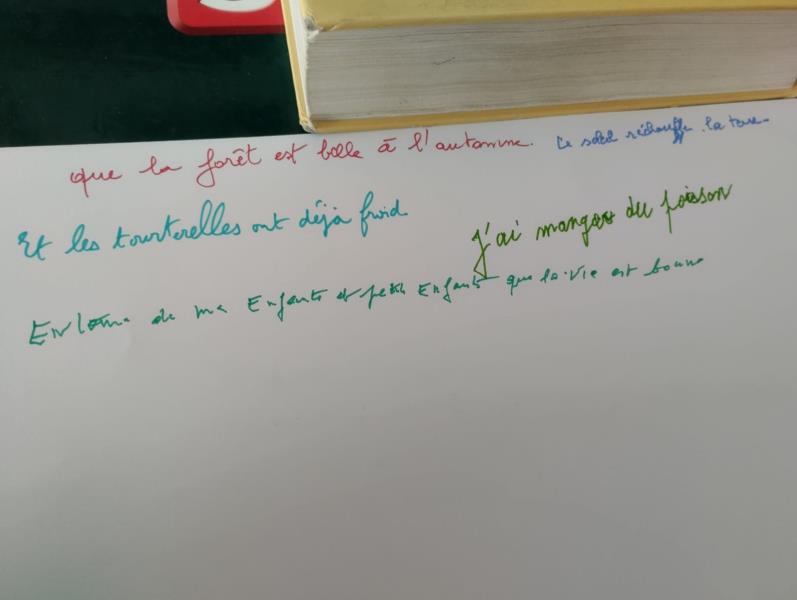 que la forêt est belle à l'automne.
Le soleil réchauffe la terre.
Et les tourterelles ont déjà froid
J'ai manger du poisson
de mes Enfants et petits Enfants que la vie est bonne